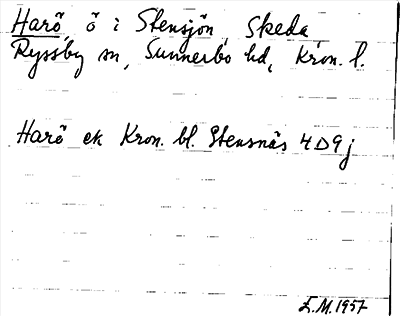 Harö, ö i Stensjön, Skeda,
Ryssby sn, Sunnerbo hd, Kron. l.
Harö ek Kron. bl. Stensnäs 4D9j
E.M. 1957